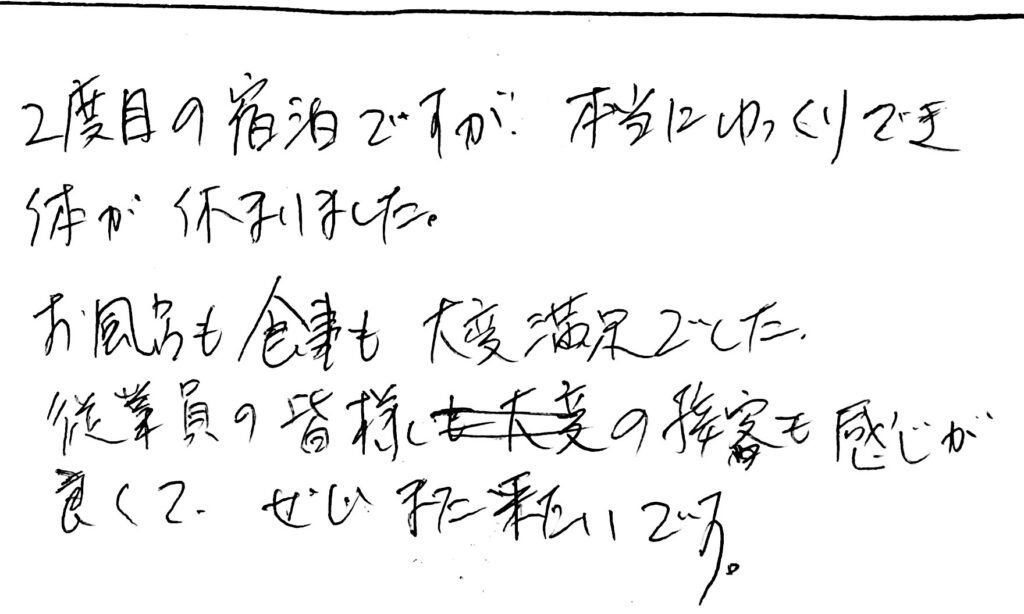 2度目の宿泊ですが、本当にゆっくりでき
体が休まりました。
お風呂も食事も大変満足でした。
従業員の皆様の接客も感じが
良くて、ぜひまた来たいです。